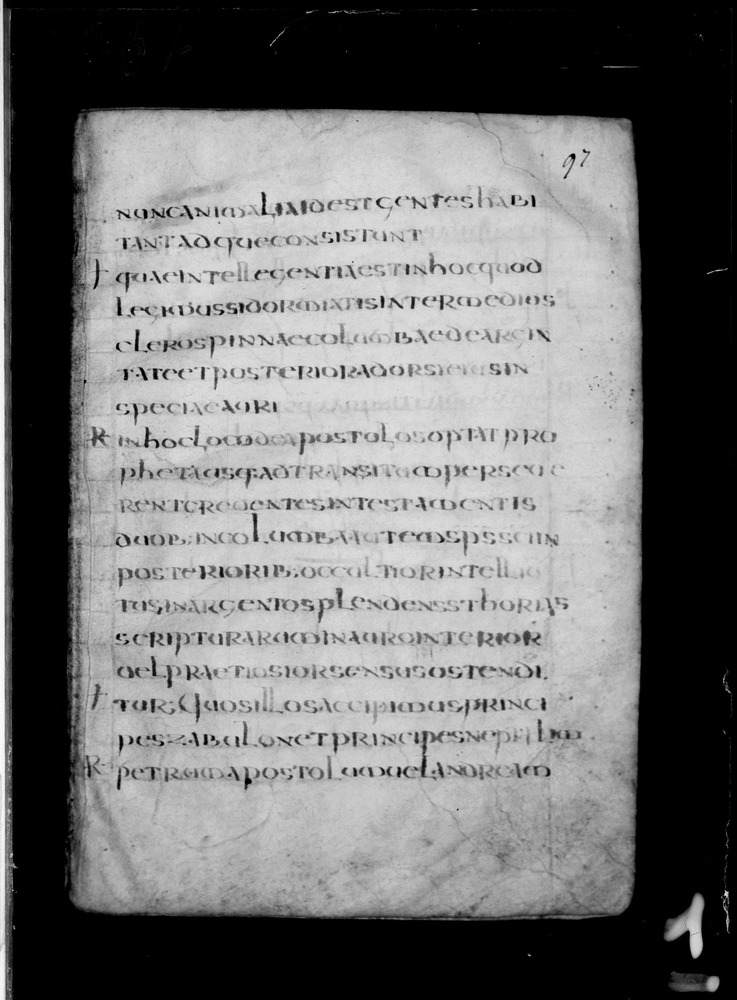 97
NUNCANIMALIAIDESTGENTESHABI
TANTADQUECONSISTUNT
QUAEINTELLEGENTIAESTINHOCQUOD
LEGIMUSSIDORMIATISINTERMEDIOS
CLEROSPINNAECOLUMBAEDEARGIN
TATEETPOSTERIORADORSIEIUSIN
SPECIAEAURI
R INHOCLOCUMAPOSTOLOSOPTATPRO
PHETAUSQ·ADTRANSITUMPERSEUE
RENTCREDENTESINTESTAMENTIS
DUOB·INCOLUMBAAUTEMSPSSCIIN
POSTERIORIB·OCCULTIORINTELLIC
TUSINARGENTOSPLENDENSSTHORIAS
SCRIPTURARUMINAUROINTERIOR
UELPRAETIOSIORSENSUSOSTENDI
TUR; QUOSILLOSACCIPIMUSPRINCI
PESZABULONETPRINCIPESNEPTALIM
R PETRUMAPOSTOLUMUELANDREAM